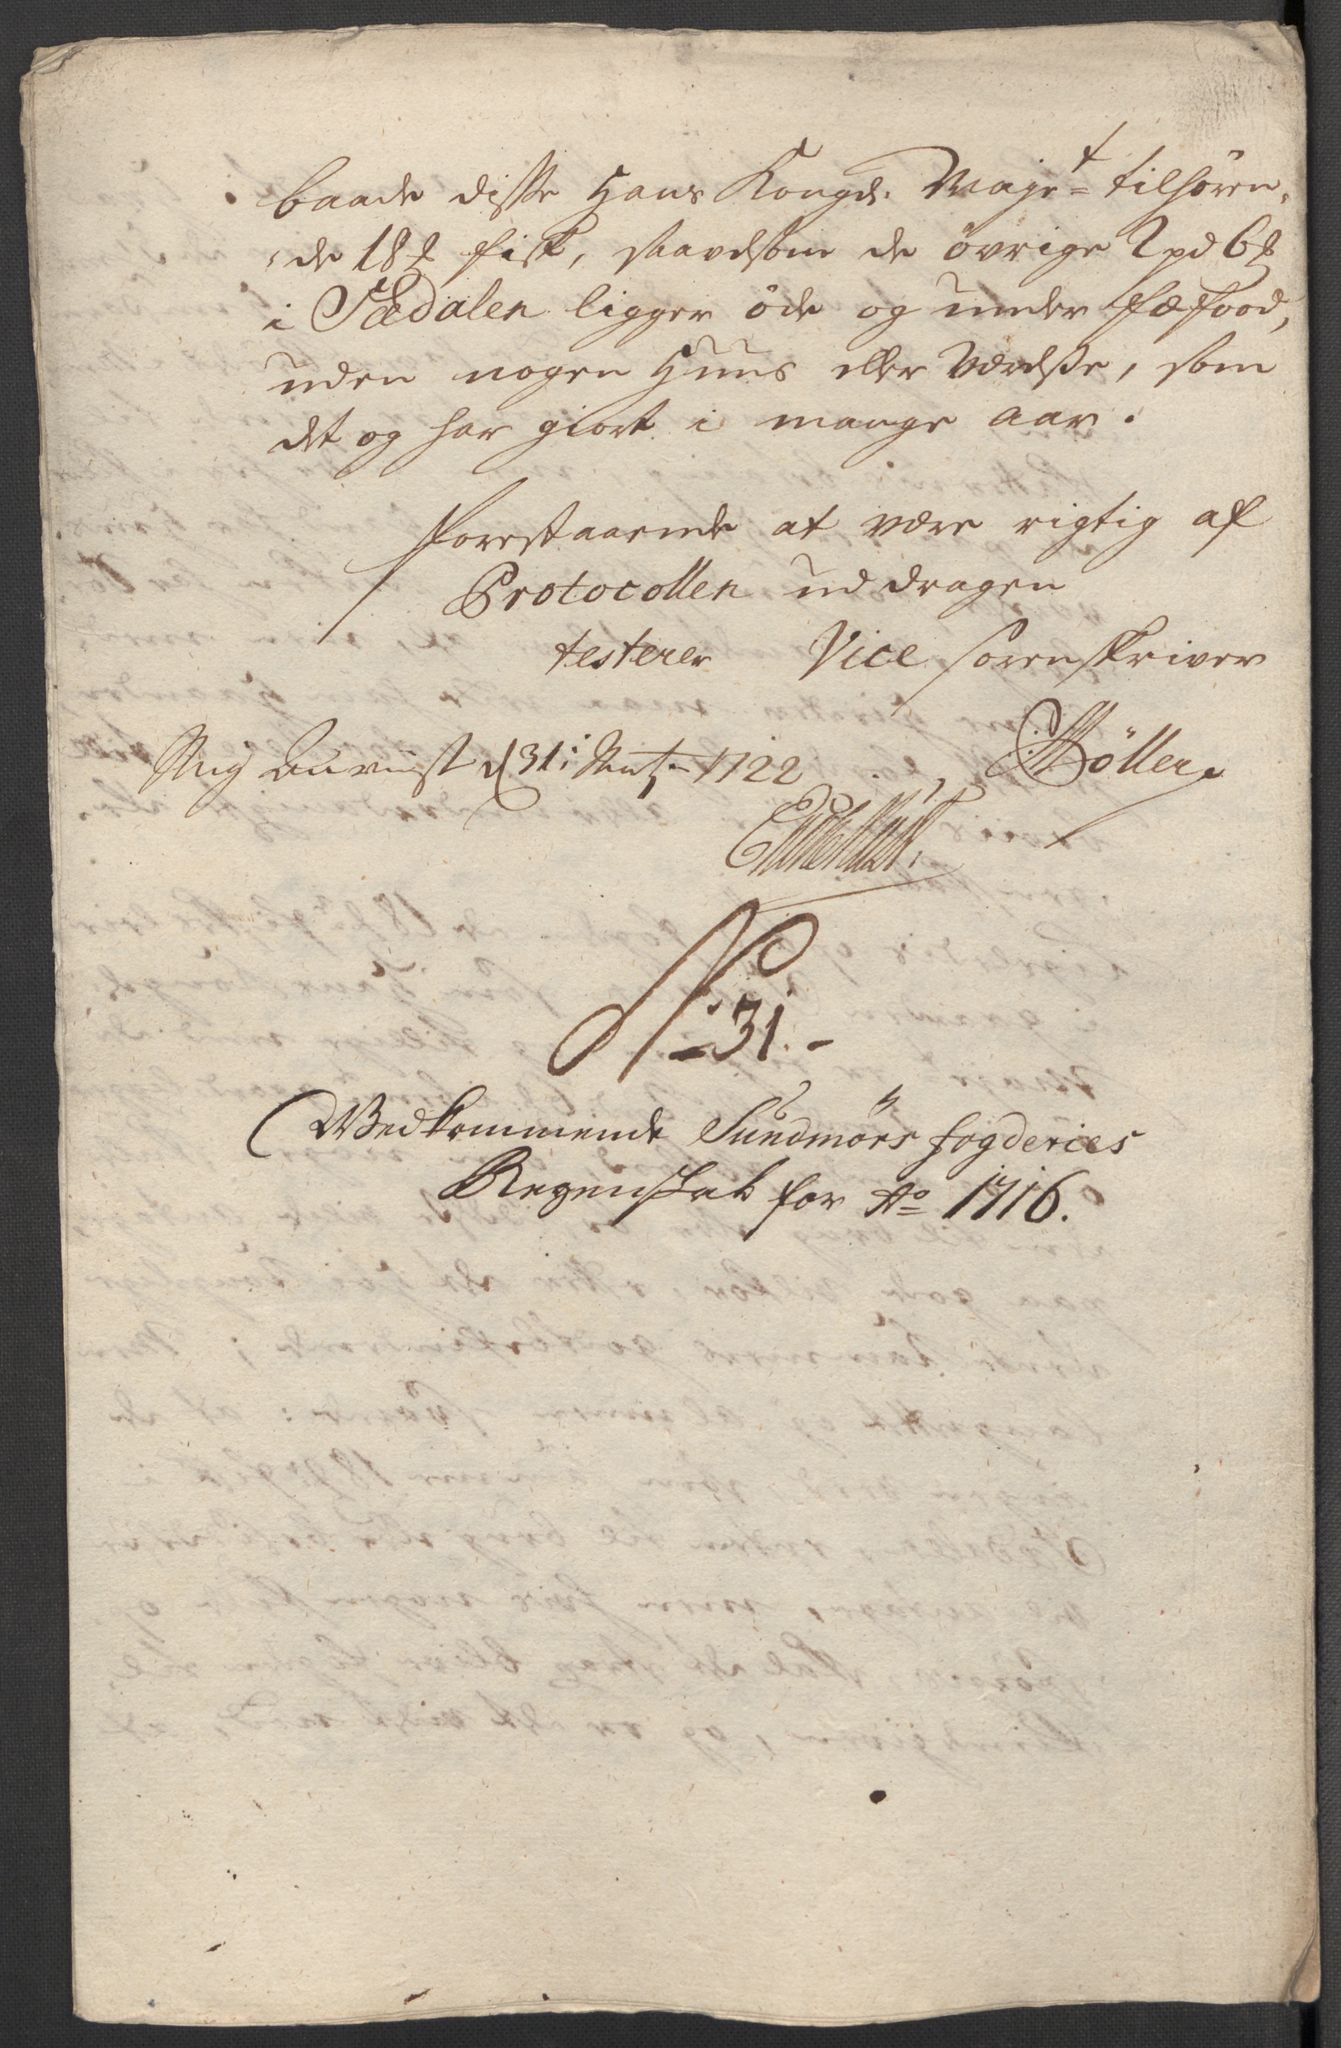 baade disse Hans Kongl. Maje=t tilhören,
,de 18 ℔ fisk, saavelsom de övrige 2 pd 6 ℔
i Sædalen ligger öde og under fæfood,
uden nogen Huus eller Værelsse, som
det og har giort i mange aar.
Forestaaende at være rigtig af
Protocollen uddragen
testerer Vice Sorenskriver
Möller
Mig anvist d 31: 1722
No 31.
Vedkommende Sundmörs fogderies
Regenskab for Ao 1716.